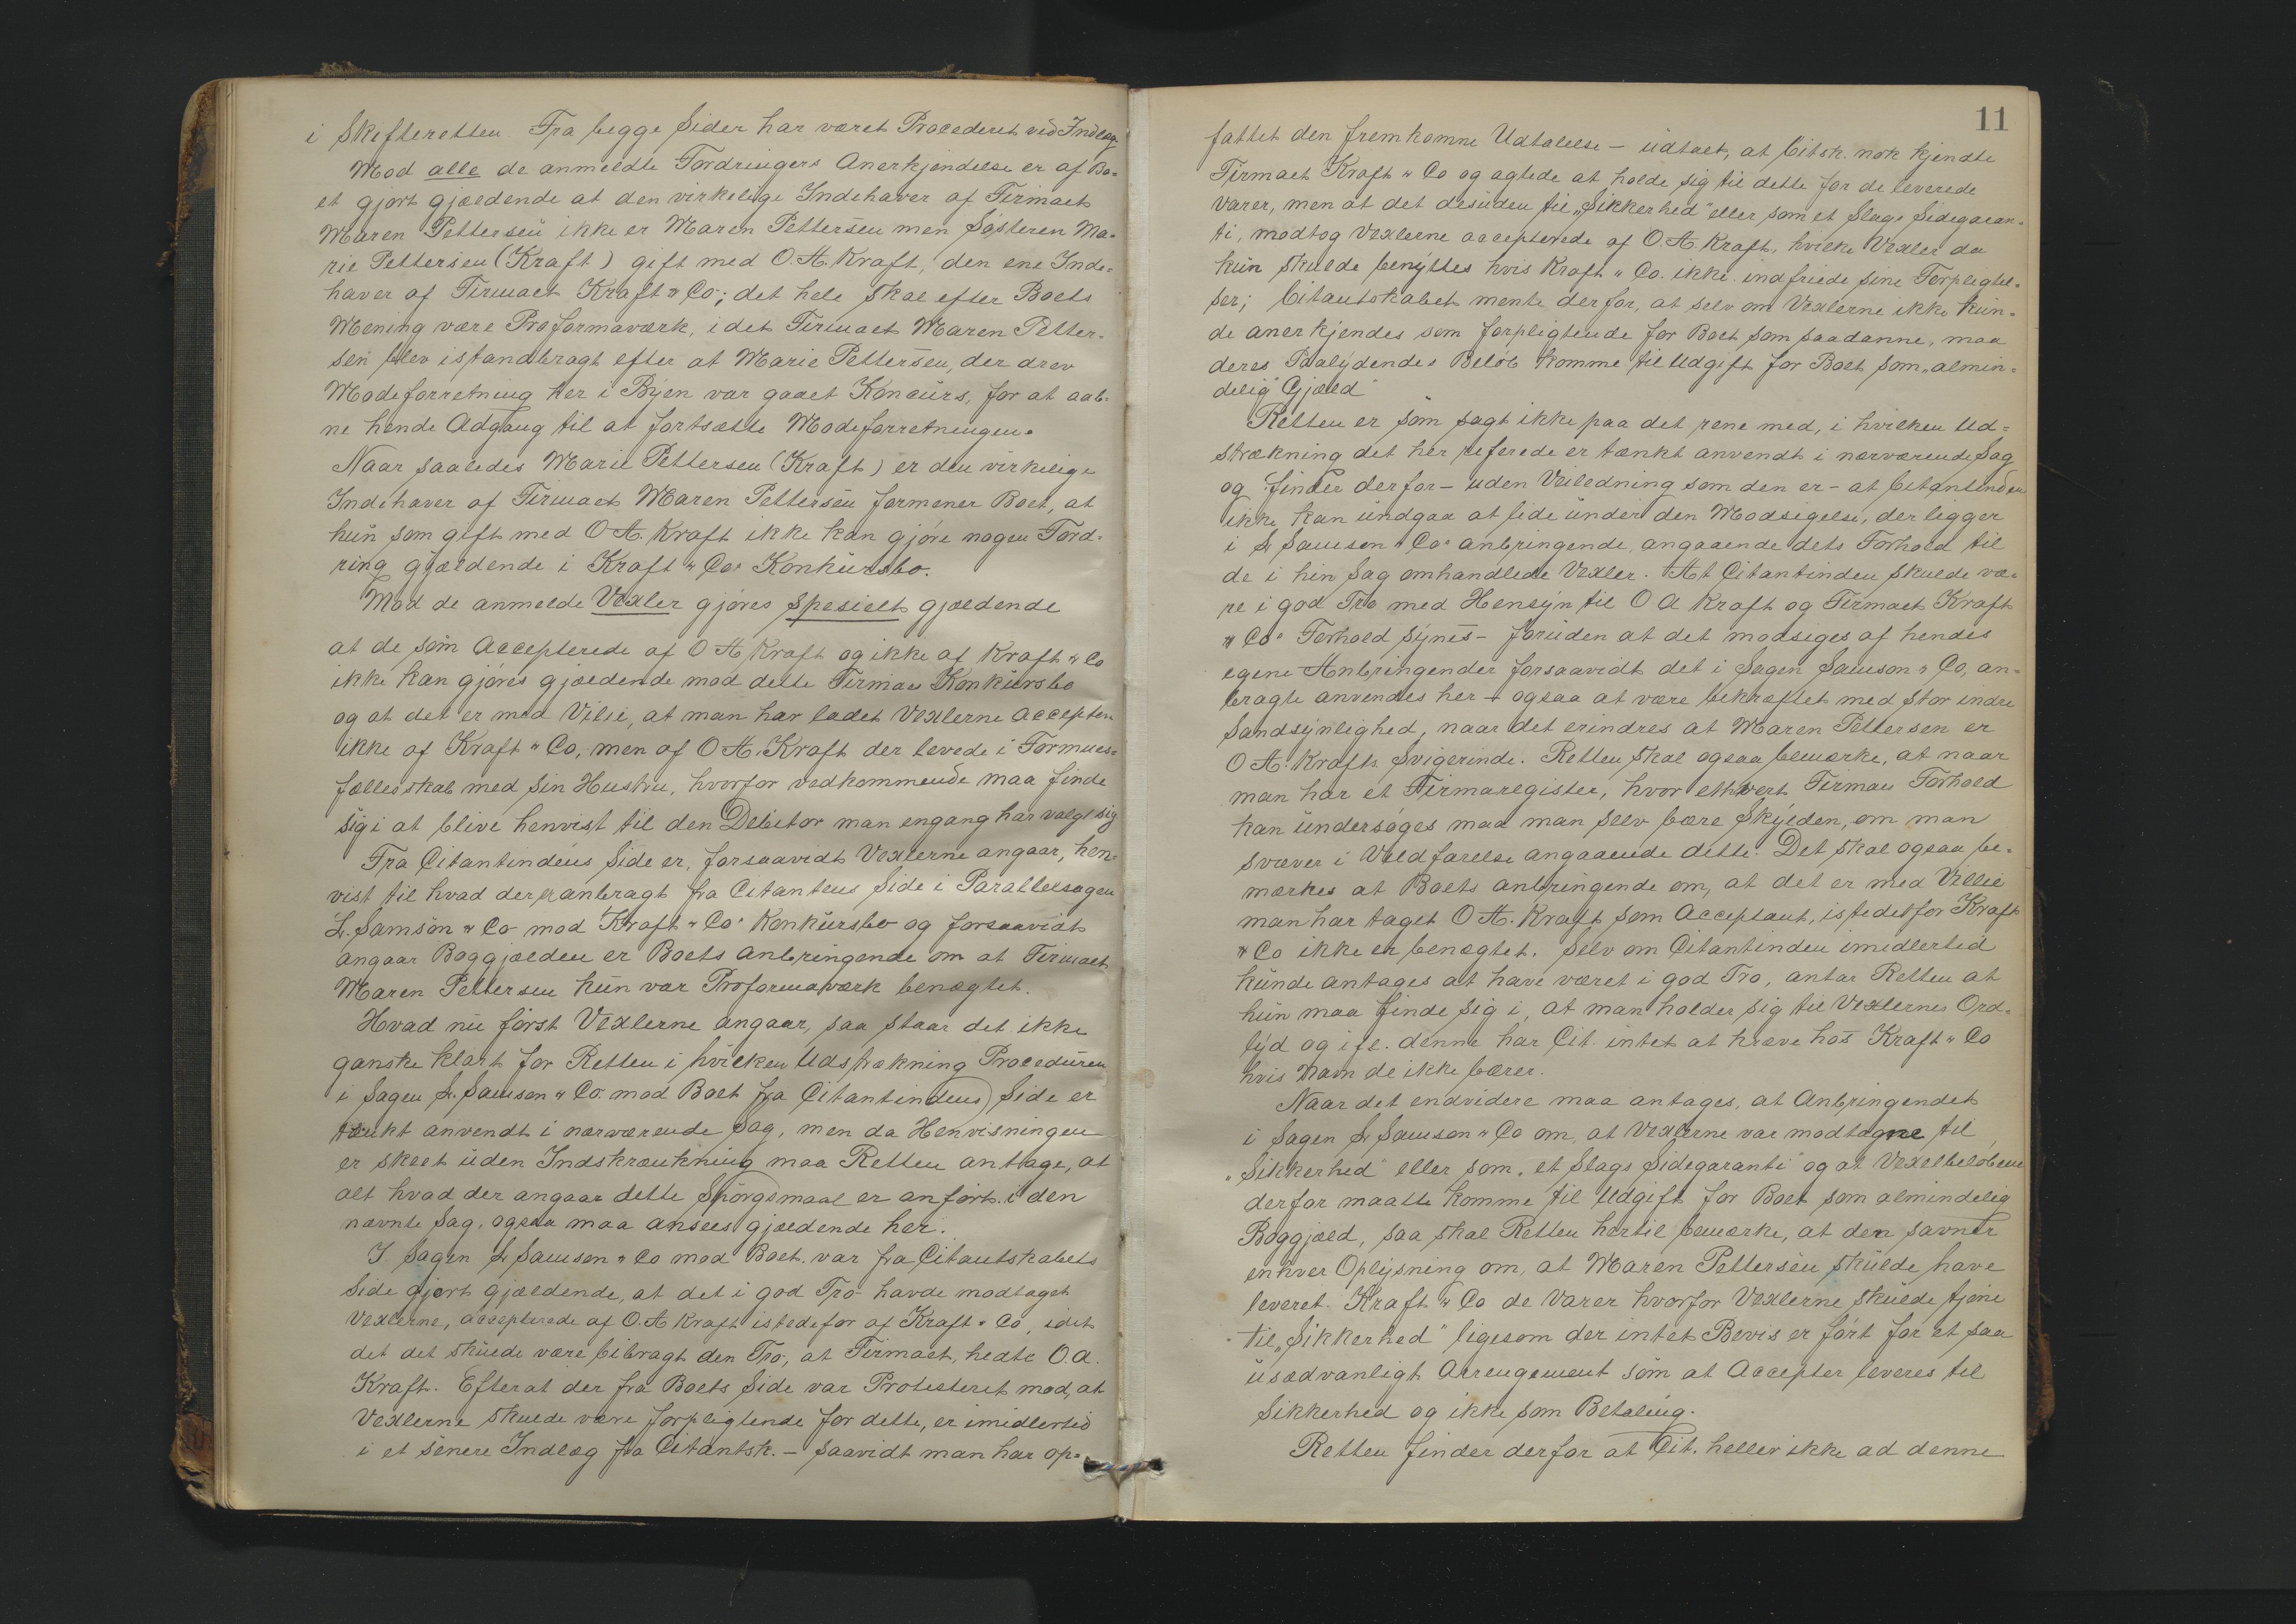 i Skifteretten. Fra begge Sider har været Procederet ved Indlæg.
Mod alle de anmeldte Fordringers Anerkjendelse er af Bo-
et gjort gjældende at den virkelige Indehaver af Firmaet
Maren Pettersen ikke er Maren Pettersen men Søsteren Ma-
rie Pettersen (Kraft) gift med O. A. Kraft, den ene Inde-
haver af Firmaet Kraft & Co.; det hele skal efter Boets
Mening være Proformaværk, idet Firmaet Maren Petter-
sen blev istandbragt efter at Marie Pettersen, der drev
Modeforretning her i Byen var gaaet Konkurs, for at aab-
ne hende Adgang til at fortsætte Modeforretningen.
Naar saaledes Marie Pettersen (Kraft) er den virkelige
Indehaver af Firmaet Maren Pettersen formener Boet, at
hun som gift med O. A. Kraft ikke kan gjøre nogen Ford-
ring gjældende i Kraft & Co. Konkursbo.
Mod de anmelde Vexler gjøres spesielt gjældende
at de som Accepterede af O A Kraft og ikke af Kraft & Co
ikke kan gjøres gjældende mod dette Firmas Konkursbo
og at det er med Vilie, at man har ladet Vexlerne accepten
ikke af Kraft & Co, men af O. A. Kraft der levede i Formues-
fællesskab med sin Hustru, hvorfor vedkommende maa finde
sig i at blive henvist til den Debitor man engang har valgt sig
Fra Citantindens Side er, forsaavidt Vexlerne angaar, hen-
vist til hvad der er anbragt fra Citantens Side i Parallelsagen
L. Samson & Co mod Kraft & Co. Konkursbo og forsaavidt
angaar Boggjælden er Boets anbringende om at Firmaet
Maren Pettersen kun var Proformaværk benægtet.
Hvad nu først Vexlerne angaar, saa staar det ikke
ganske klart for Retten i hvilken Udstrækning Proceduren
i Sagen L. Samson & Co. mod Boet fra Citantindens Side er
tænkt anvendt i nærværende Sag, men da Henvisningen
er skeet uden Indskrænkning maa Retten antage, at
alt hvad der angaar dette Spørgsmaal er anført i den
nævnte Sag, ogsaa maa ansees gjældende her.
I Sagen L Samson & Co mod Boet var fra Citantskabets
Side gjort gjældende, at det i god Tro havde modtaget
Vexlerne, accepterede af O. A Kraft istedefor af Kraft & Co, idet
det det skulde være bibragt den Tro, at Firmaet, hedte O. A.
Kraft. Efterat der fra Boets Side var Protesteret mod, at
Vexlerne skulde være forpligtende for dette, er imidlertid
i et senere Indlæg fra Citantsk. - saavidt man har op-
11
fattet den fremkomne Udtalelse - udtalt, at Citsk. nok kjendte
Firmaet Kraft & Co og agtede at holde sig til dette for de leverede
varer, men at det desuden til "Sikkerhed" eller som et Slags Sidegaran-
ti, modtog Vexlerne accepterede af O. A. Kraft, hvilke Vexler da
kun skulde benyttes hvis Kraft & Co. ikke indfriede sine Forpligtel-
ser; Citantskabet mente derfor, at selv om Vexlerne ikke kun-
de anerkjendes som forpligtende for Boet som saadanne, maa
deres Paalydende Beløb komme til Udgift for Boet som "almin-
delig Gjæld"
Retten er som sagt ikke paa det rene med, i hvilken Ud-
strækning det her referede er tænkt anvendt i nærværende Sag
og finder derfor - uden Veiledning som den er - at Citantinden
ikke kan undgaa at lide under den Modsigelse, der ligger
i L Samson & Co. anbringende angaaende dets Forhold til
de i hin Sag omhandlede Vexler. At Citantinden skulde væ-
re i god Tro med Hensyn til O A Kraft og Firmaet Kraft
& Co. Forhold synes - foruden at det modsiges af hendes
egene Anbringender forsaavidt det i Sagen Samson & Co, an-
bragte anvendes her - ogsaa at være bekræftet med stor indre
Sandsynlighed, naar det erindres at Maren Pettersen er
O. A. Krafts Svigerinde. Retten skal ogsaa bemærke, at naar
man har et Firmaregister, hvor ethvert Firmas Forhold
kan undersøges maa man selv bære Skylden, om man
svæver i Vildfarelse angaaende dette. Det skal ogsaa be-
mærkes at Boets anbringende om, at det er med Villie
man har taget O A. Kraft som Acceptant, istedetfor Kraft
& Co ikke er benægtet. Selv om Citantinden imidlertid
kunde antages at have været i god Tro, antar Retten at
hun maa finde sig i, at man holder sig til Vexlernes Ord-
lyd og ifl. denne har Cit. intet at kræve hos Kraft & Co
hvis Navn de ikke bærer.
Naar det endvidere maa antages, at Anbringendet
i Sagen L Samson & Co om, at Vexlerne var modtagne til
"Sikkerhed" eller som "et Slags Sidegaranti" og at Vexelbeløbene
derfor maatte komme til Udgift for Boet som almindelig
Boggjæld, saa skal Retten hertil bemærke, at den savner
enhver Oplysning om, at Maren Pettersen skulde have
leveret Kraft & Co de Varer hvorfor Vexlerne skulde tjene
til "Sikkerhed" ligesom der intet Bevis er ført for et saa
usædvanligt Arrengement som at Accepter leveres til
Sikkerhed og ikke som Betaling.
Retten finder derfor at Cit. heller ikke ad denne